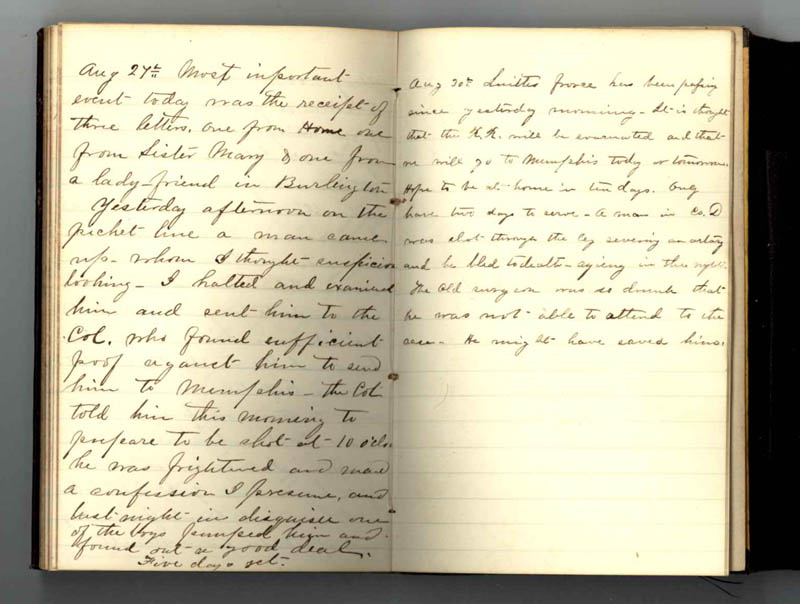 Aug 27th Most important
event today was the receipt of
three letters, one from Home one
from Sister Mary & one from
a lady-friend in Burlington
Yesterday afternoon on the
picket line a man came
up - whom I thought suspicion
looking - I halted and examined
him and sent him to the
Col. who found sufficient
poof against him to send
him to Memphis - the Col
told him this morning to
prepare to be shot at 10 oclo
he was frightened and made
a confession I presume, and
last night in disguise one
of the boys pumped him and
found out a good deal.
Five days yet.
Aug 30th Smiths froce has been passing
since yesterday morning - It is thought
that the R.R. will be evacuated and that
we will go to Memphis today or tomorrow.
Hope to be at home in ten days. Only
have two days to serve - A man in Co. D
was shot through the leg severing an artery
and he bled to death - in the night
The old surgeon was so drunk that
he was not able to attend to the
case - He might have saved him.